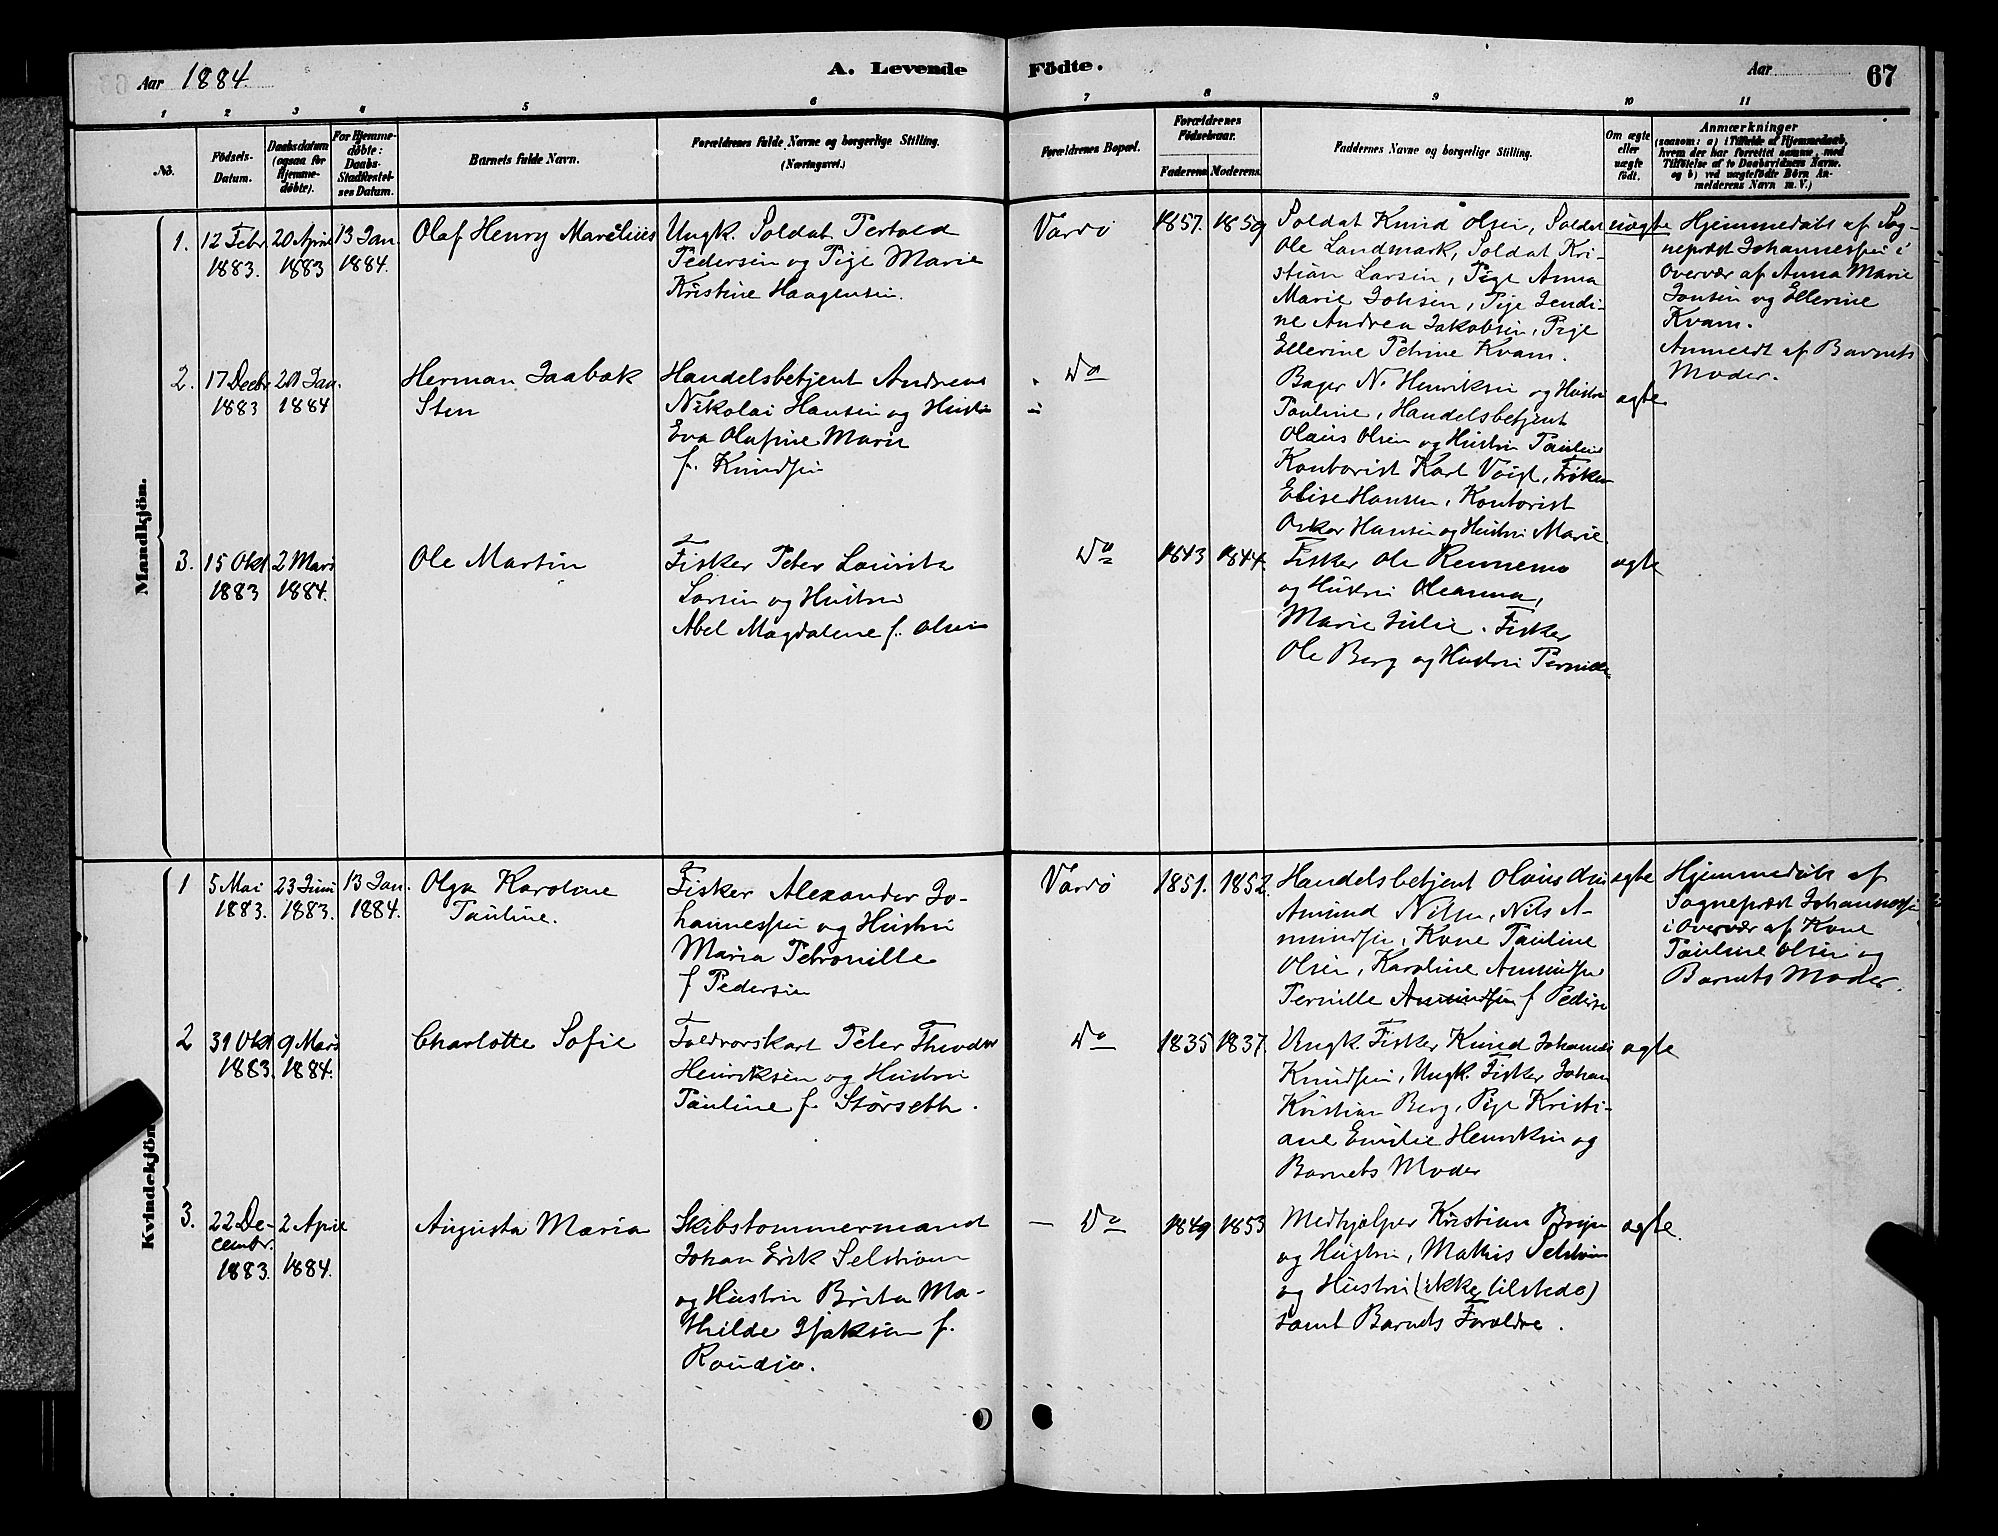 Aar 1884.
A. Levende Födte.
Aar
67
1 2 3 4 5 6 7 8 9 10 11
No.
Födsels-
Datum.
Daabsdatum
(ogsaa for
Hjemme-
döbte).
For Hjemme-
döbte:
Daabs-
Stadfæstel-
ses Datum.
Barnets fulde Navn.
Forældrenes fulde Navne og borgerlige Stilling.
(Næringsvei.)
Forældrenes Bopæl.
Forældrenes
Födselsaar.
Faderens. Moderens.
Faddernes Navne og borgerlige Stilling.
Om ægte
eller
uægte
födt.
Anmærkninger
(saasom: a) i Tilfælde af Hjemmedaab,
hvem der har forrettet samme, med
Tilföielse af to Daabsvidners Navne.
og b) ved uægtefödte Börn An-
melderens Navn m. V.)
Mandkjön.
1.
12 Febr
1883.
20 April
1883
13 Jan.
1884.
Olaf Henry Marelius
Ungk. Soldat Pertold
Pedersen og Pige Marie
Kristine Haagensen.
Vardø
1857. 1859
Soldat Knud Olsen, Soldat
Ole Landmark, Soldat Kri-
stian Larsen, Pige Anna
Marie Johsen, Pige Jendi-
ne Andrea Jakobsen, Pige
Ellerine Petrine Kvam.
uægte
Hjemmedøbt af Sog-
nepræst Johannessen i
Overvær af Anna Marie
Jonsen og Ellerine
Kvam.
Anmeldt af Barnets
Moder.
2.
17 Decbr
1883
20 Jan.
1884
Herman Jaabæk
Sten
Handelsbetjent Andreas
Nikolai Hansen og Hustru
Eva Olufine Marie
f. Knudsen
Do
Bager N. Henriksen og Hustru
Pauline, Handelsbetjent
Olaus Olsen og Hustru Pauline
Kontorist Karl Voigt, Frøken
Elise Hansen, Kontorist
Oskar Hansen og Hustru Marie.
ægte
3.
15 Okt
1883
2 Mars
1884.
Ole Martin
Fisker Peter Lauritz
Larsen og Hustru
Abel Magdalene f. Olsen
Do
1843 1844.
Fisker Ole Rennemo
og Hustru Oleanna,
Marie Julie. Fisker
Ole Berg og Hustru Pernille
ægte
Kvindekjön
1
5 Mai
1883.
23 Juni
1883.
13 Jan.
1884.
Olga Karoline
Pauline.
Fisker Alexander Jo-
hannessen og Hustru
Maria Petronille
f Pedersen
Vardø
1851. 1852.
Handelsbetjent Olaus Olsen
Amund Nilsen, Nils A-
mundsen, Kone Pauline
Olsen, Karoline Amundsen
Pernille Amundsen f Pedersen
ægte
Hjemmedøbt af
Sognepræst Johannessen
i Overvær af Kone
Pauline Olsen og
Barnets Moder.
2
31 Okt
1883.
9 Mars
1884.
Charlotte Sofie
Toldvorskarl Peter Theodor
Henriksen og Hustru
Pauline f. Størseth.
Do
1835 1837.
Ungk. Fisker Knud Johannes
Knudsen, Ungk. Fisker Johan
Kristian Berg, Pige Kristi-
ane Emilie Henriksen og
Barnets Moder
ægte
3.
22 De-
cembr.
1883.
2 April
1884.
Augusta Maria
Skibstømmermand
Johan Erik Selström
og Hustru Brita Ma-
thilde Isaksen f.
Raudjo.
Do
1849 1853
Medhjælper Kristian
og Hustru, Mathis Selström
og Hustru (ikke tilstede)
samt Barnets Forældre.
ægte.